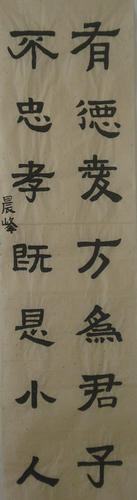 有德爱方為君子
不忠孝既是小人
晨峯